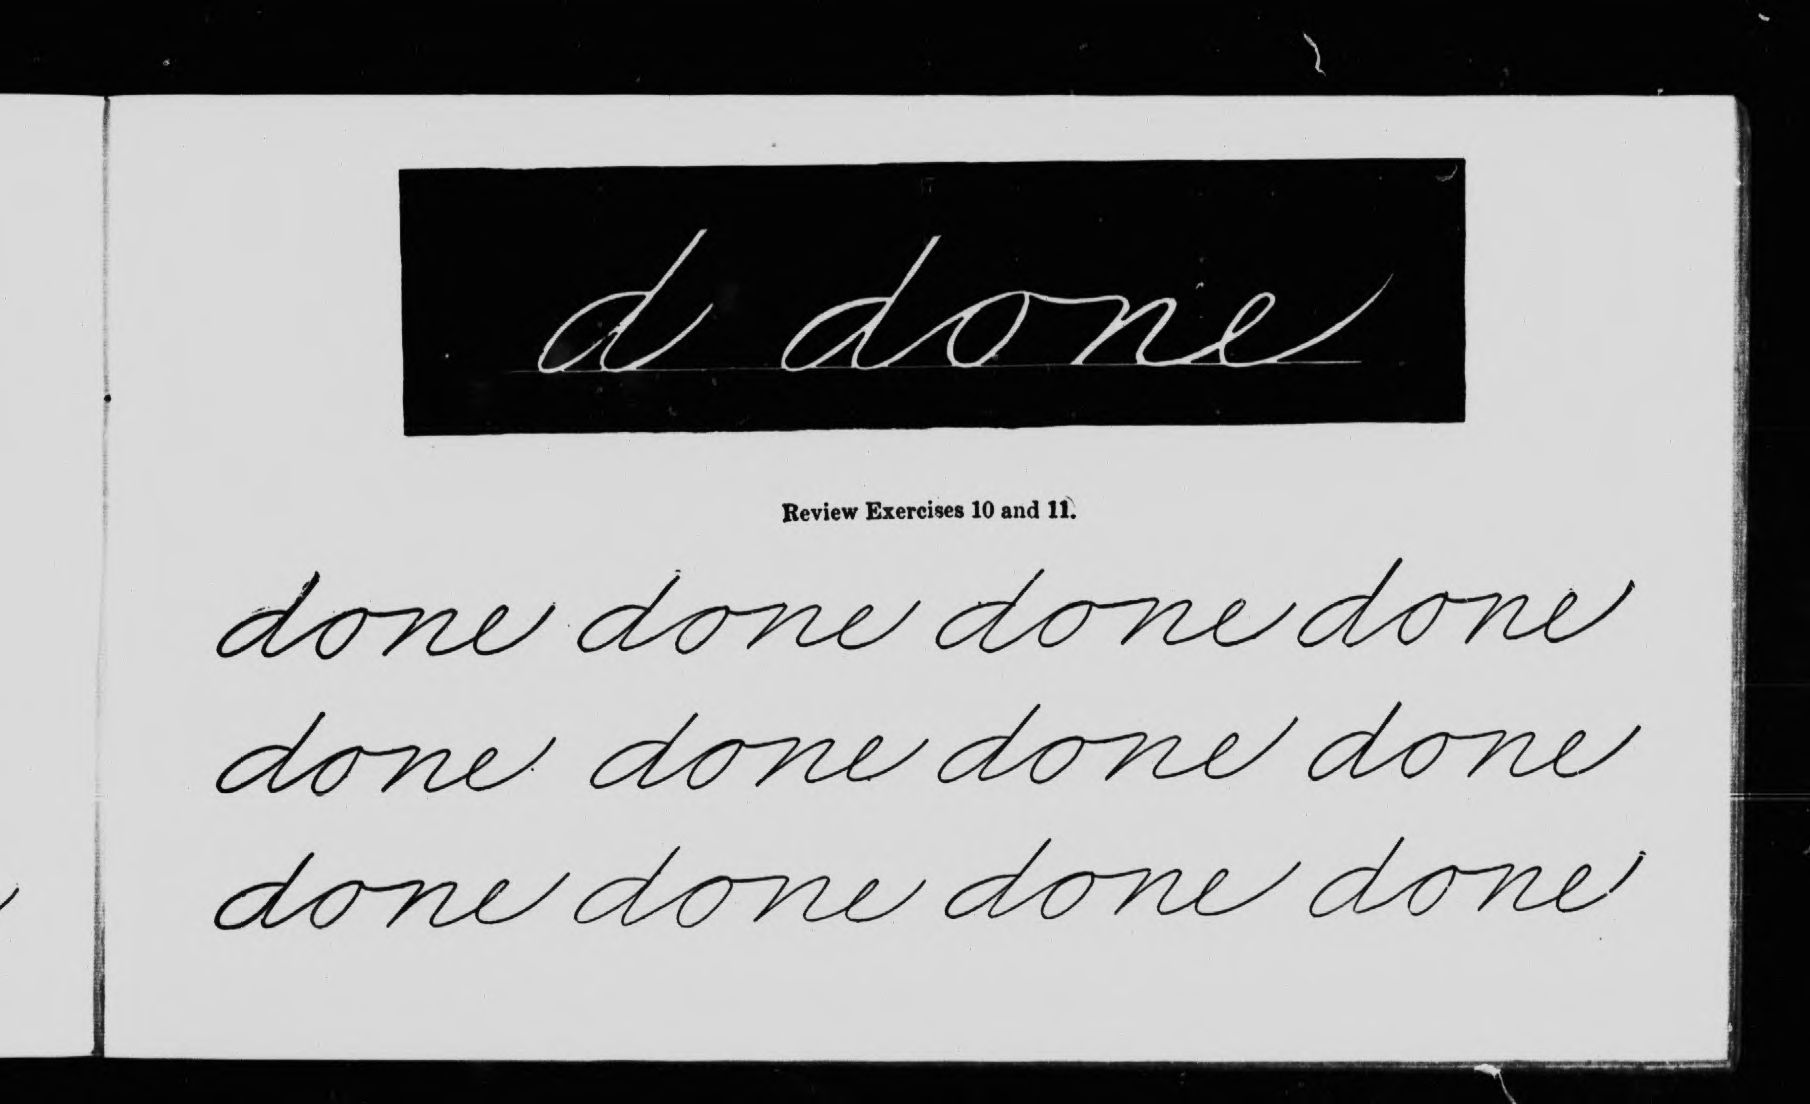 d done
Review Exercises 10 and 11.
done done done done
done done done done
done done done done